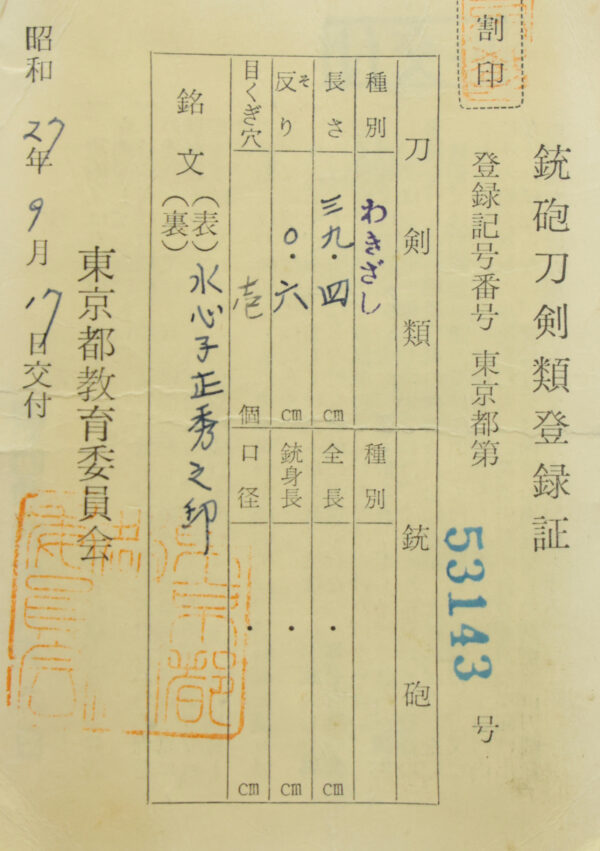 割印
銃砲刀剣類登録証
登録記号番号 東京都第 53143 号
刀剣類 銃砲
種別 わきざし 種別
長さ 三九・四 cm 全長 ・ cm
反り そ 〇・六 cm 銃身長 ・ cm
目くぎ穴 壱 個 口径 ・ cm
銘文 (表) 水心子正秀之印
(裏)
東京都教育委員会
昭和 27年 9月 17日交付